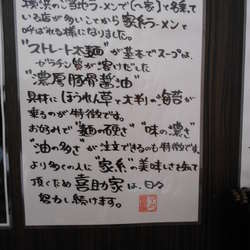 横浜のご当地ラーメンで(〜家)と名乗って
いる店が多いことから家系ラーメンと
呼ばれる様になりました。
"ストレート太麺"が基本でスープは、
ゼラチン質が溶けだした
"濃厚豚骨醤油"
具材にほうれん草や大判の海苔が
乗るのが特徴です。
お好みで"麺の硬さ" "味の濃さ"
"油の多さ"が注文できるのも特徴です。
より多くの人に"家系"の美味しさを知って
頂くため喜助家は、日々
努力し続けます。